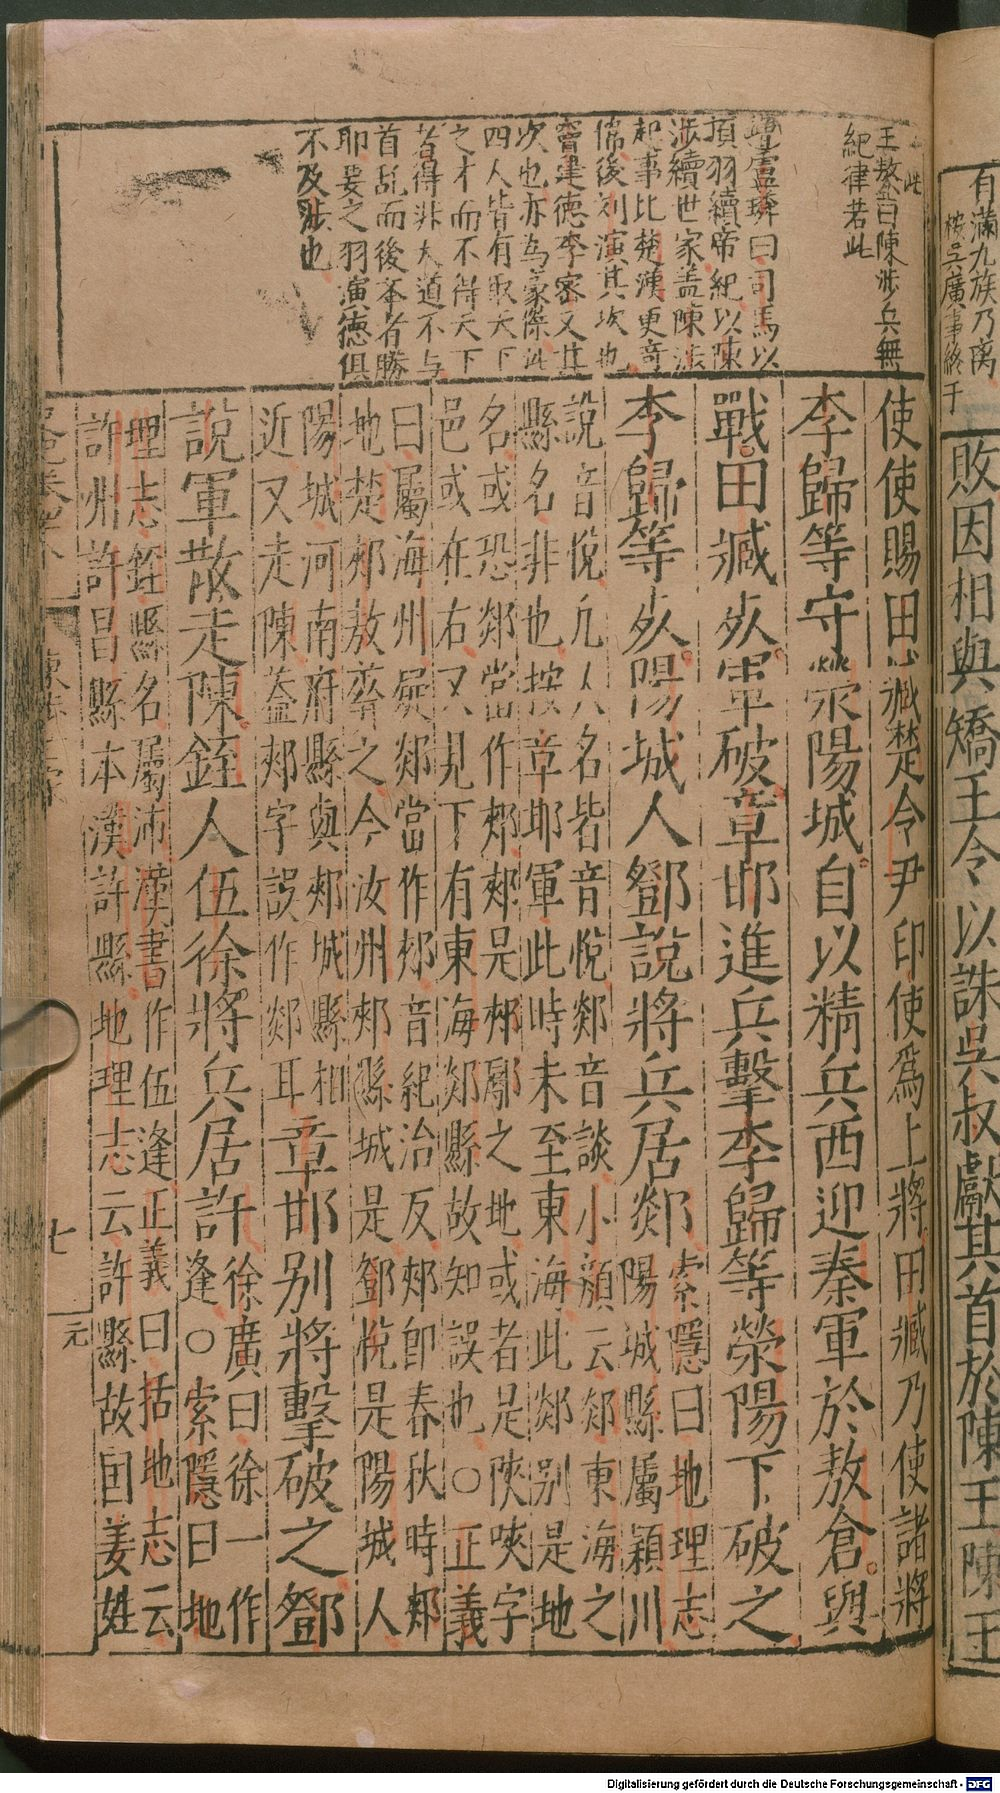 有滿九族乃离
桉吳廣事終于
敗因相與矯王令以誅吳叔獻其首於陳王陳王
此
王鏊曰陳涉兵無
紀律若此
盧璘曰司馬以
項羽續帝紀以陳
涉續世家盖陳涉
起事比楚漢更奇
偉後刘演其次也
竇建德李密又其
次也亦為豪傑此
四人皆有取天下
之才而不得天下
者得非大道不与
首乱而後筞者勝
耶要之羽演德俱
不及涉也
使使賜田臧楚令尹印使爲上將田臧乃使諸將
李歸等守滎陽城自以精兵西迎秦軍於敖倉與
戰田臧死軍破章邯進兵擊李歸等滎陽下破之
李歸等死陽城人鄧說將兵居郯
索隱曰地理志
陽城縣屬穎川
說音悅凢人名皆音悅郯音談小顔云郯東海之
縣名非也按章耶軍此時未至東海此郯别是地
名或恐郯當作郟郟是郟鄏之地或者是陝㗼字
邑或在右又見下有東海郯縣故知誤也○正義
曰屬海州疑郯當作郟音紀洽反郟即春秋時郟
地楚郟敖葬之今汝州郟縣城是鄧悅是陽城人
陽城河南府縣與郟城縣相
近又走陳葢郟字誤作郯耳
章邯别將擊破之鄧
說軍散走陳銍人伍徐將兵居許
徐廣曰徐一作
逢○索隱曰地
理志銍縣名屬沛漢書作伍逢正義曰括地志云
許州許昌縣本漢許縣地理志云許縣故囯姜姓
七
元
Digitalisierung gefördert durch die Deutsche Forschungsgemeinschaft - DFG